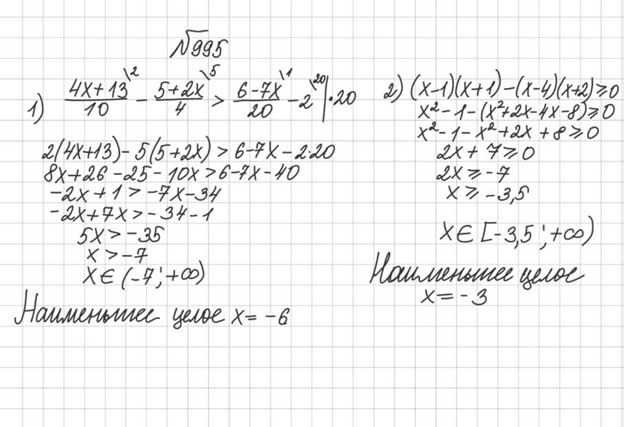 №995
1) (4x+13)/10 \2 - (5+2x)/4 \5 > (6-7x)/20 \1 - 2 \20 |·20
2(4x+13)-5(5+2x)>6-7x-2·20
8x+26-25-10x>6-7x-40
-2x+1>-7x-34
-2x+7x>-34-1
5x>-35
x>-7
x∈(-7;+∞)
Наименьшее целое x=-6
2) (x-1)(x+1)-(x-4)(x+2)⩾0
x²-1-(x²+2x-4x-8)⩾0
x²-1-x²+2x+8⩾0
2x+7⩾0
2x⩾-7
x⩾-3,5
x∈[-3,5;+∞)
Наименьшее целое
x=-3